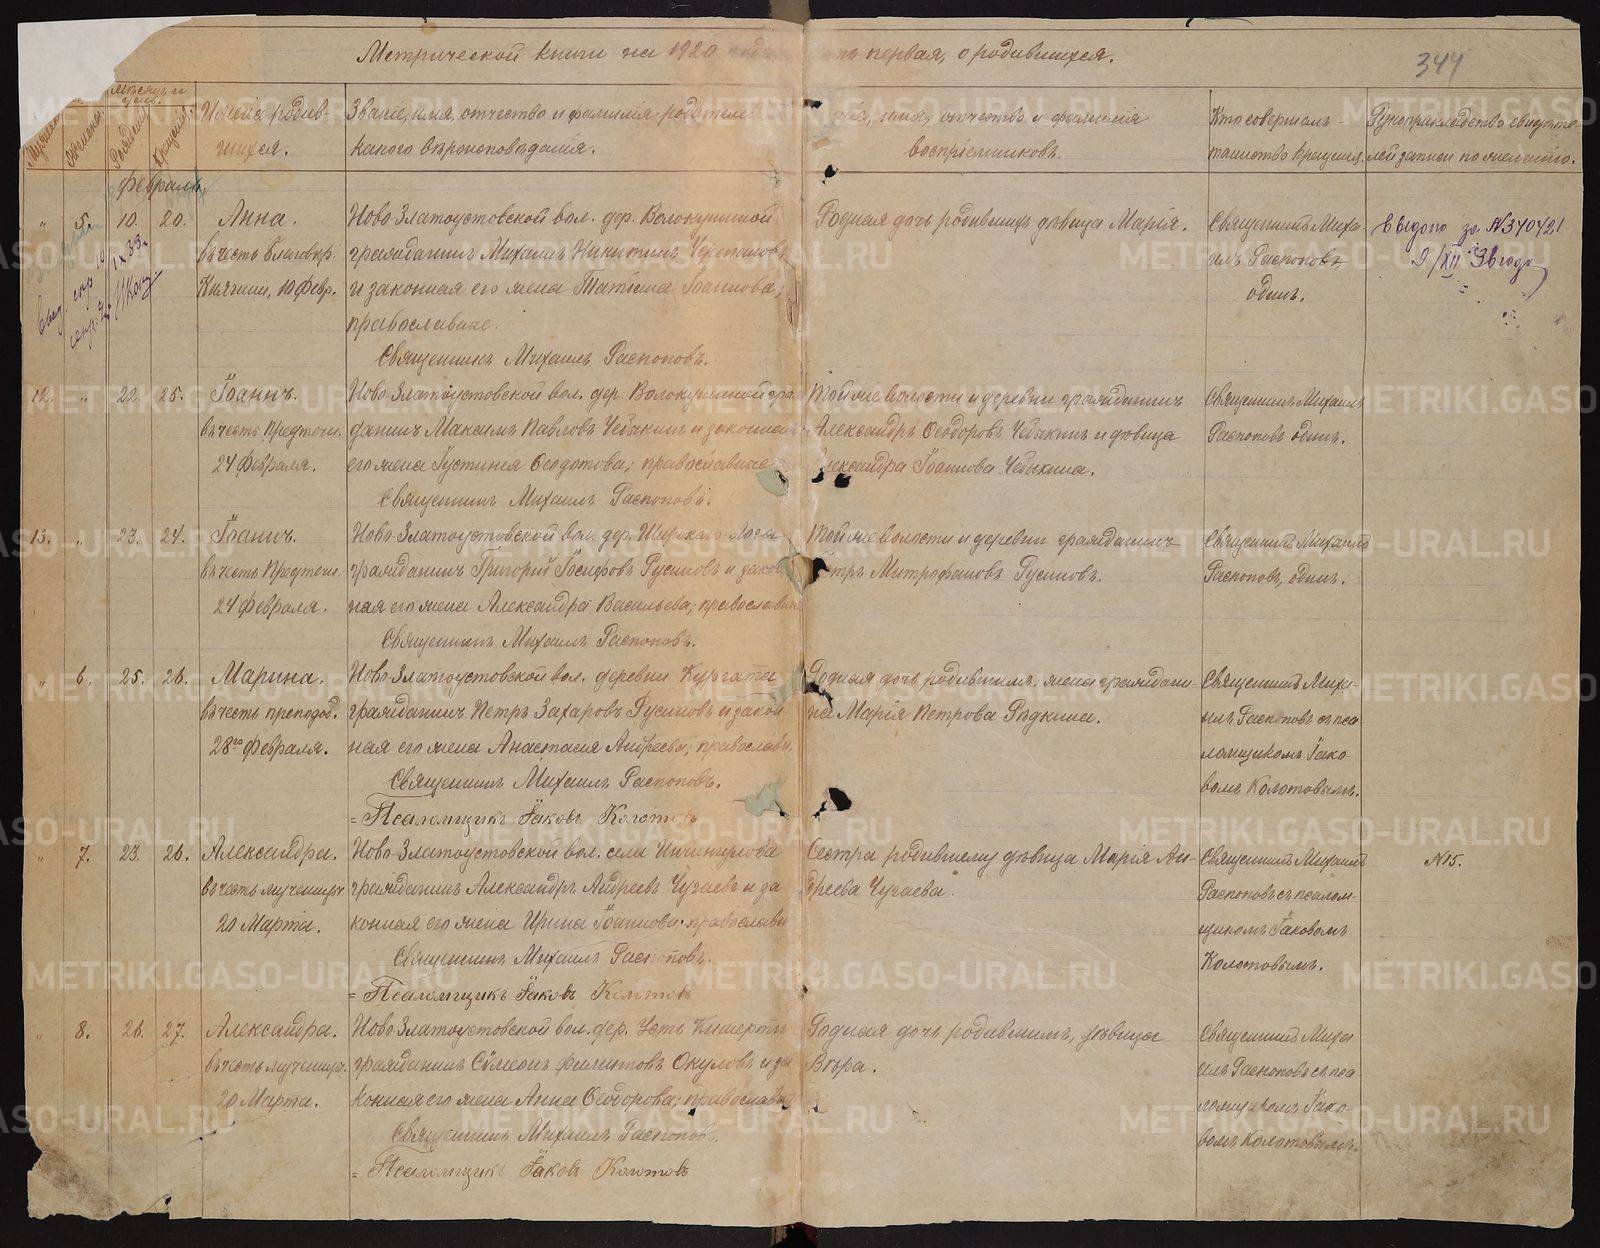 Метрической книги на 1920 года
ть первая, о родившихся.
344
Мѣсяцъ и
день.
Рожденія
Крещенія
Имена родив-
шихся.
Званіе, имя, отчество и фамилія родителей
какого вѣроисповѣданія.
имя, отчество и фамилія
воспріемниковъ.
Кто совершалъ
таинство крещенія.
Рукоприкладство свидѣте-
лей записи по желанію.
Февраль.
" 5. 10. 20.
Анна.
въ честь Благовѣр.
Княгини, 10 Февр.
Ново Златоустовской вол. дер. Волокушиной
гражданинъ Михаилъ Никитинъ
и законная его жена Татіана Іоаннова,
православные.
Священникъ Михаилъ Распоповъ.
Родная дочь родившихъ дѣвица Марія.
Священникъ Миха-
илъ Распоповъ,
одинъ.
Выдано за №340421
9/XII 39 года
12. " 22. 25.
Іоаннъ.
въ честь Предтечи.
24 Февраля.
Ново Златоустовской вол. дер. Волокушиной гра-
данинъ Максимъ Павловъ Чебыкинъ и законная
его жена Іустинія Ѳеодотова; православные
Священникъ Михаилъ Распоповъ.
Той же волости и деревни гражданинъ
Александръ Ѳеодоровъ Чебыкинъ и дѣвица
Александра Іоаннова Чебыкина.
Священникъ Михаилъ
Распоповъ одинъ.
13. " 23. 24.
Іоаннъ.
въ честь Предтечи.
24 Февраля.
Ново Златоустовской вол. дер. Широкаго Лога
гражданинъ Григорій Іосифовъ Русиновъ и закон
ная его жена Александра Васильева; православн
Священникъ Михаилъ Распоповъ.
Той же волости и деревни гражданинъ
Петръ Митрофановъ Русиновъ.
Священникъ Михаилъ
Распоповъ, одинъ.
" 6. 25. 26.
Марина.
въ честь преподоб.
28го Февраля.
Ново Златоустовской вол. деревни Кургата
гражданинъ Петръ Захаровъ Русиновъ и закон
ная его жена Анастасія Андреева; православн.
Священникъ Михаилъ Распоповъ.
= Псаломщикъ Іаковъ Колотовъ
Родная дочь родившимъ, жена граждани-
на Марія Петрова Рѣдкина.
Священникъ Миха-
илъ Распоповъ съ пса
ломщикомъ Іако-
вомъ Колотовымъ.
" 7. 23. 26.
Александра.
въ честь мученицы
20 Марта.
Ново Златоустовской вол. села
гражданинъ Александръ Андреевъ Чугаевъ и за
конная его жена Ирина Іоаннова; православн
Священникъ Михаилъ Распоповъ.
= Псаломщикъ Іаковъ Колотовъ
Сестра родившему дѣвица Марія Ан-
дреева Чугаева.
Священникъ Михаилъ
Распоповъ съ псалом-
щикомъ Іаковомъ
Колотовымъ.
№15.
" 8. 26. 27.
Александра.
въ честь мученицы.
20 Марта.
Ново Златоустовской вол. дер. Усть Кишерти
гражданинъ Сѵмеонъ Филиповъ Окуловъ и за
конная его жена Анна Ѳеодорова; православн
Священникъ Михаилъ Распоповъ.
= Псаломщикъ Іаковъ Колотовъ
Родная дочь родившимъ, дѣвица
Вѣра.
Священникъ Миха
илъ Распоповъ съ пса
ломщикомъ Іако-
вомъ Колотовымъ.
METRIKI.GASO-URAL.RU